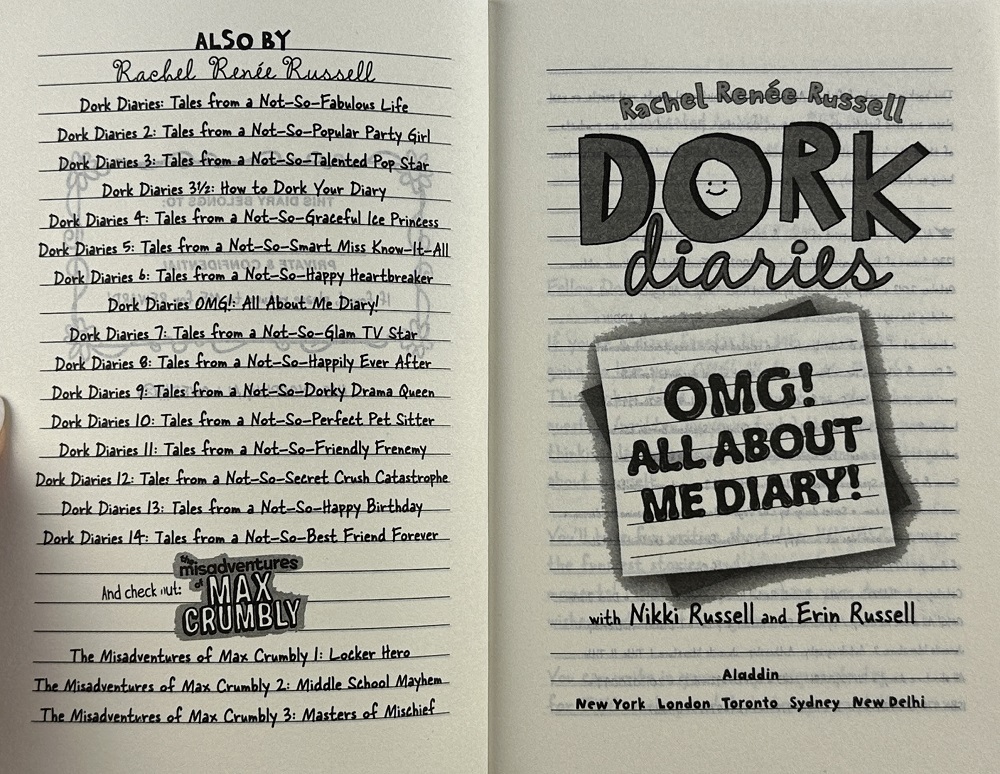 ALSO BY
Rachel Renée Russell
Dork Diaries: Tales from a Not-So-Fabulous Life
Dork Diaries 2: Tales from a Not-So-Popular Party Girl
Dork Diaries 3: Tales from a Not-So-Talented Pop Star
Dork Diaries 3½: How to Dork Your Diary
Dork Diaries 4: Tales from a Not-So-Graceful Ice Princess
Dork Diaries 5: Tales from a Not-So-Smart Miss Know-It-All
Dork Diaries 6: Tales from a Not-So-Happy Heartbreaker
Dork Diaries OMG!: All About Me Diary!
Dork Diaries 7: Tales from a Not-So-Glam TV Star
Dork Diaries 8: Tales from a Not-So-Happily Ever After
Dork Diaries 9: Tales from a Not-So-Dorky Drama Queen
Dork Diaries 10: Tales from a Not-So-Perfect Pet Sitter
Dork Diaries 11: Tales from a Not-So-Friendly Frenemy
Dork Diaries 12: Tales from a Not-So-Secret Crush Catastrophe
Dork Diaries 13: Tales from a Not-So-Happy Birthday
Dork Diaries 14: Tales from a Not-So-Best Friend Forever
And check out:
the misadventures
of MAX
CRUMBLY
The Misadventures of Max Crumbly 1: Locker Hero
The Misadventures of Max Crumbly 2: Middle School Mayhem
The Misadventures of Max Crumbly 3: Masters of Mischief
Rachel Renée Russell
DORK
diaries
OMG!
ALL ABOUT
ME DIARY!
with Nikki Russell and Erin Russell
Aladdin
New York London Toronto Sydney New Delhi